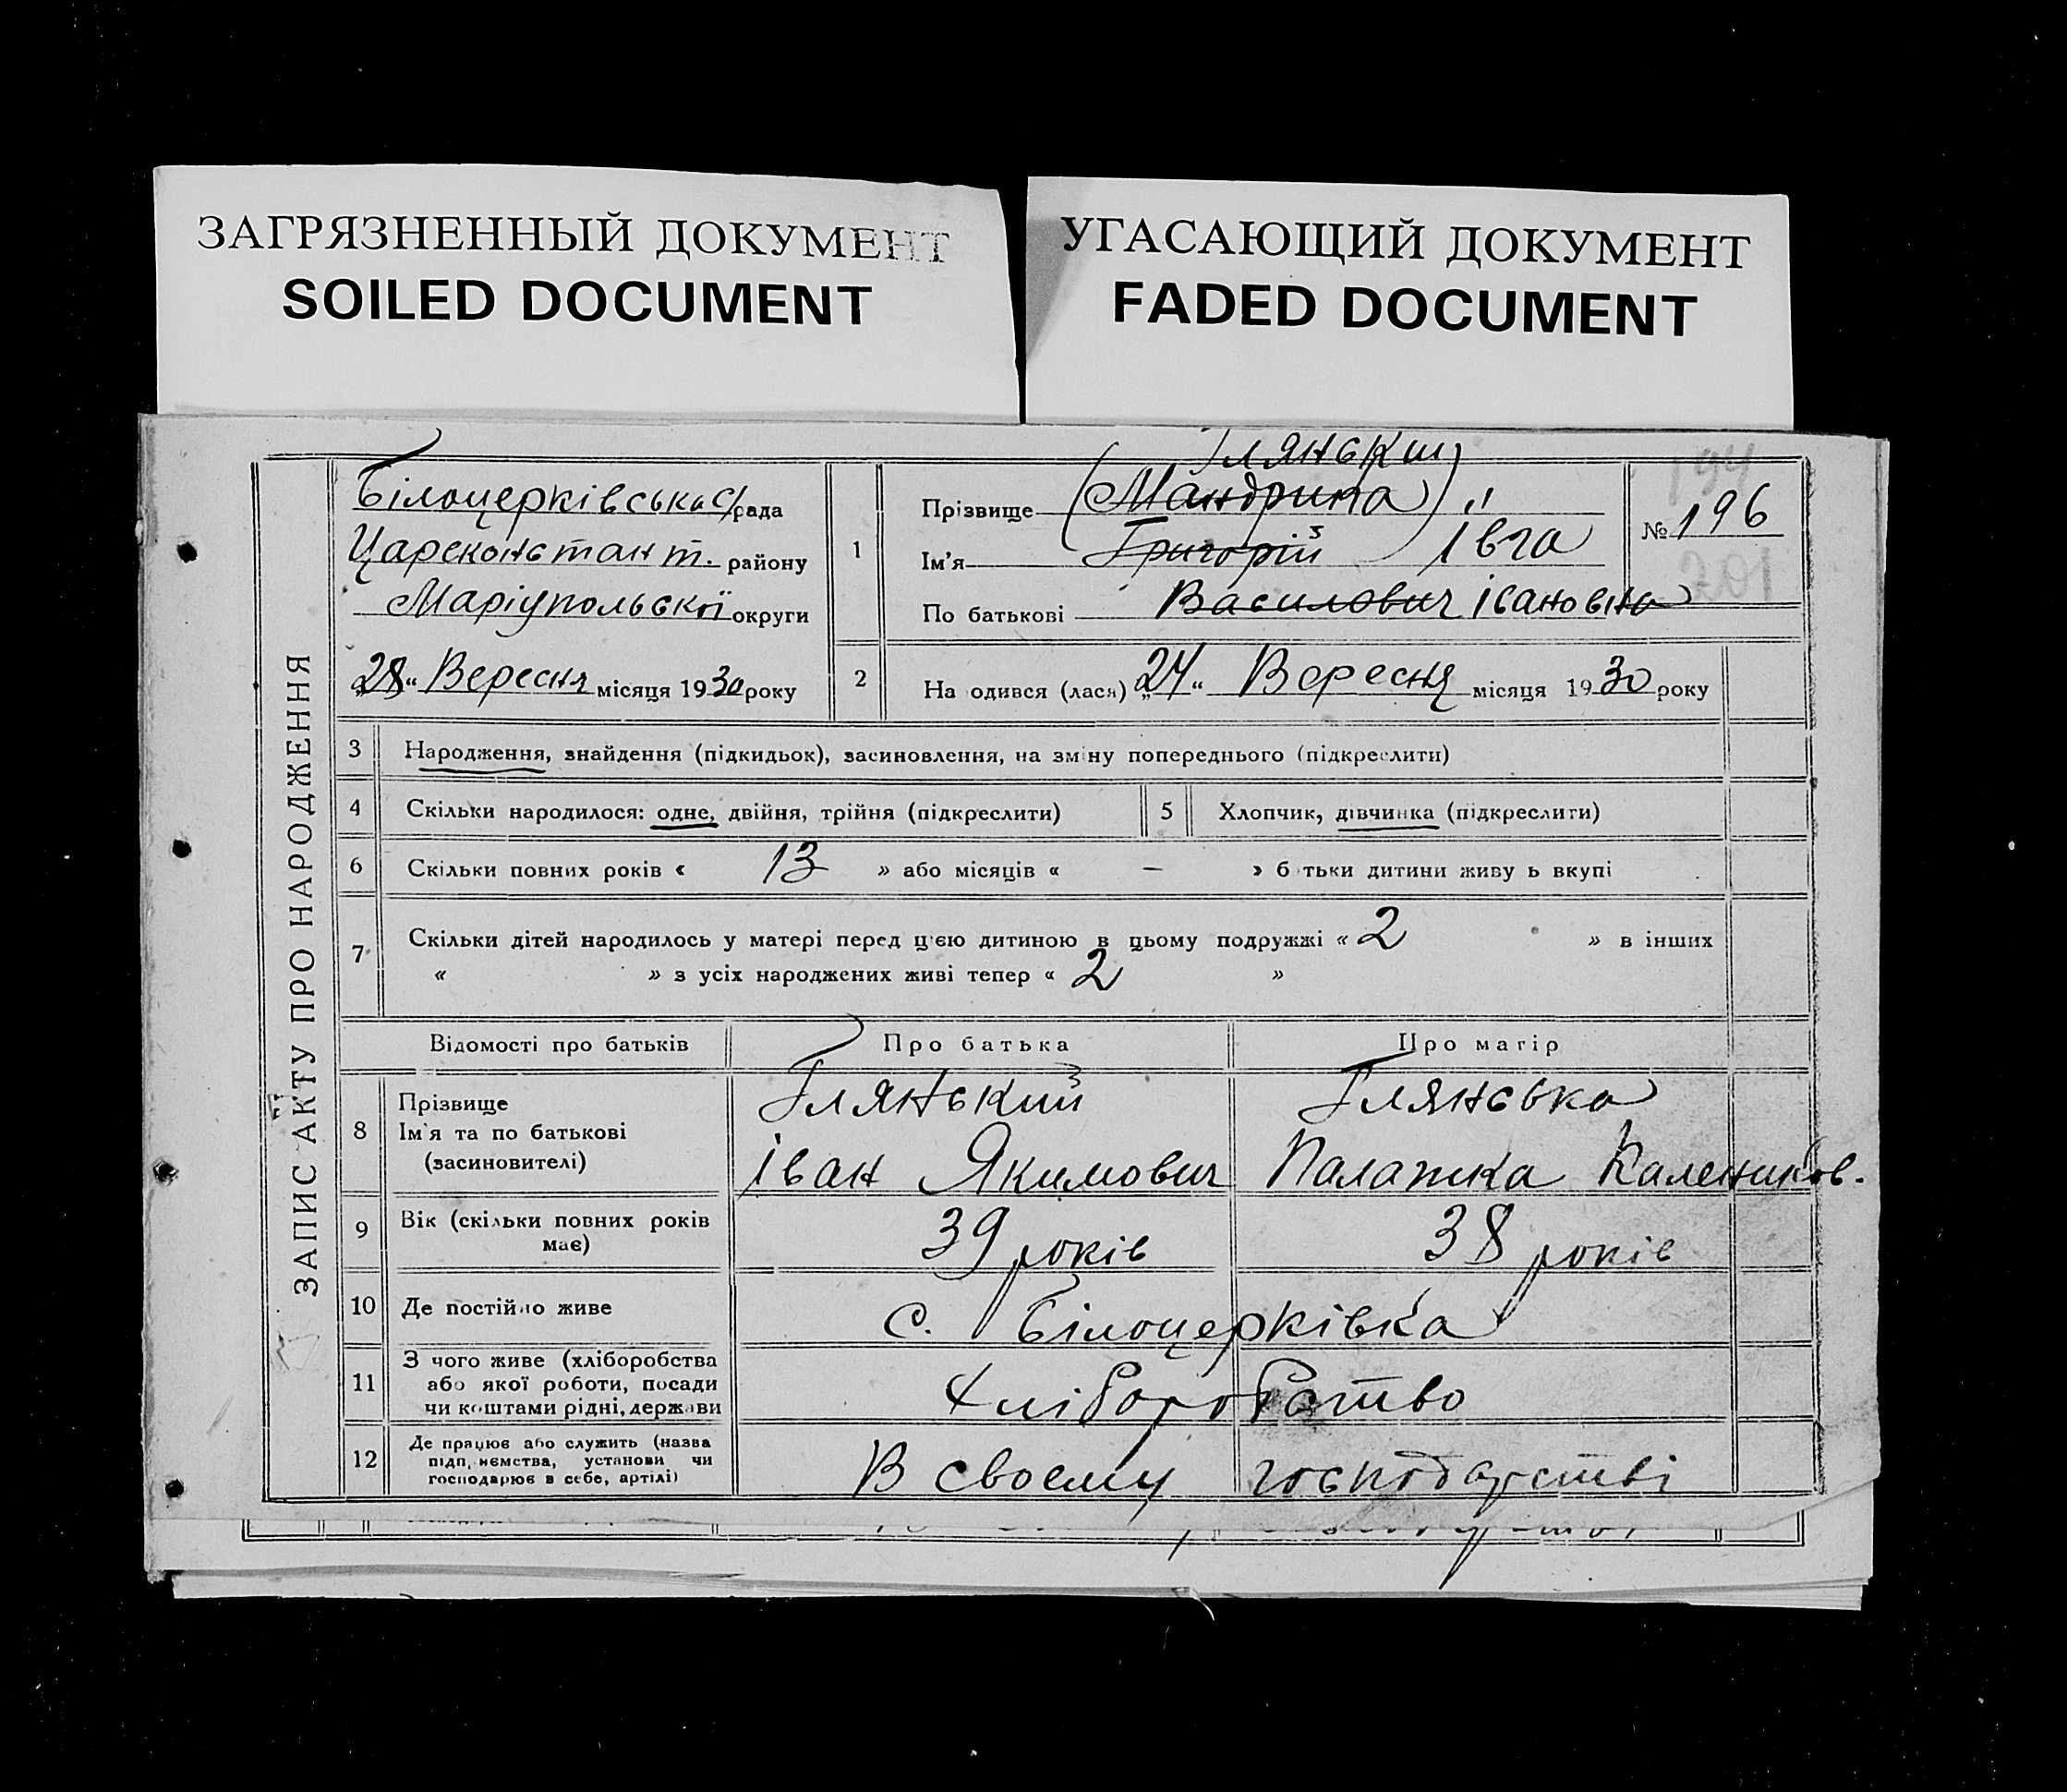 ЗАГРЯЗНЕННЫЙ ДОКУМЕНТ
SOILED DOCUMENT
УГАСАЮЩИЙ ДОКУМЕНТ
FADED DOCUMENT
ЗАПИС АКТУ ПРО НАРОДЖЕННЯ
Білоцерківська с/рада
Цареконстант. району
Маріупольської округи
„28“ Вересня місяця 1930 року
1
Глянський
Прізвище (Мандрика)
Ім'я Григорій Івга
По батькові Василович Івановна
194
№ 196
201
2 На одився (лася) „24“ Вересня місяця 1930 року
3 Народження, знайдення (підкидьок), засиновлення, на зміну попереднього (підкреслити)
4 Скільки народилося: одне, двійня, трійня (підкреслити) 5 Хлопчик, дівчинка (підкреслити)
6 Скільки повних років « 13 » або місяців « — » б тьки дитини живу ь вкупі
7 Скільки дітей народилось у матері перед цією дитиною в цьому подружжі « 2 » в інших
« » з усіх народжених живі тепер « 2 »
Відомості про батьків Про батька Про матір
8 Прізвище Глянський Глянська
Ім'я та по батькові
(засиновителі) Іван Якимович Палажка Калеников.
9 Вік (скільки повних років має) 39 років 38 років
10 Де постійно живе с. Білоцерківка
11 З чого живе (хліборобства
або якої роботи, посади
чи коштами рідні, держави Хліборобство
12 Де працює або служить (назва
підп, иємства, установи чи
господарює в себе, артілі) В своему господарстві